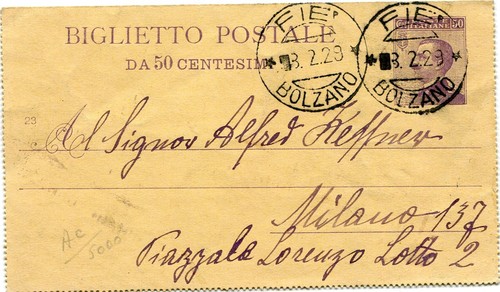 BIGLIETTO POSTALE
DA 50 CENTESIMI
FIE'
8.2.29
BOLZANO
FIE'
8.2.29
BOLZANO
ITALIANE 50
23
Al Signor Alfred Keffner
Milano 137
Piazzale Lorenzo Lotto 2
AC
5000